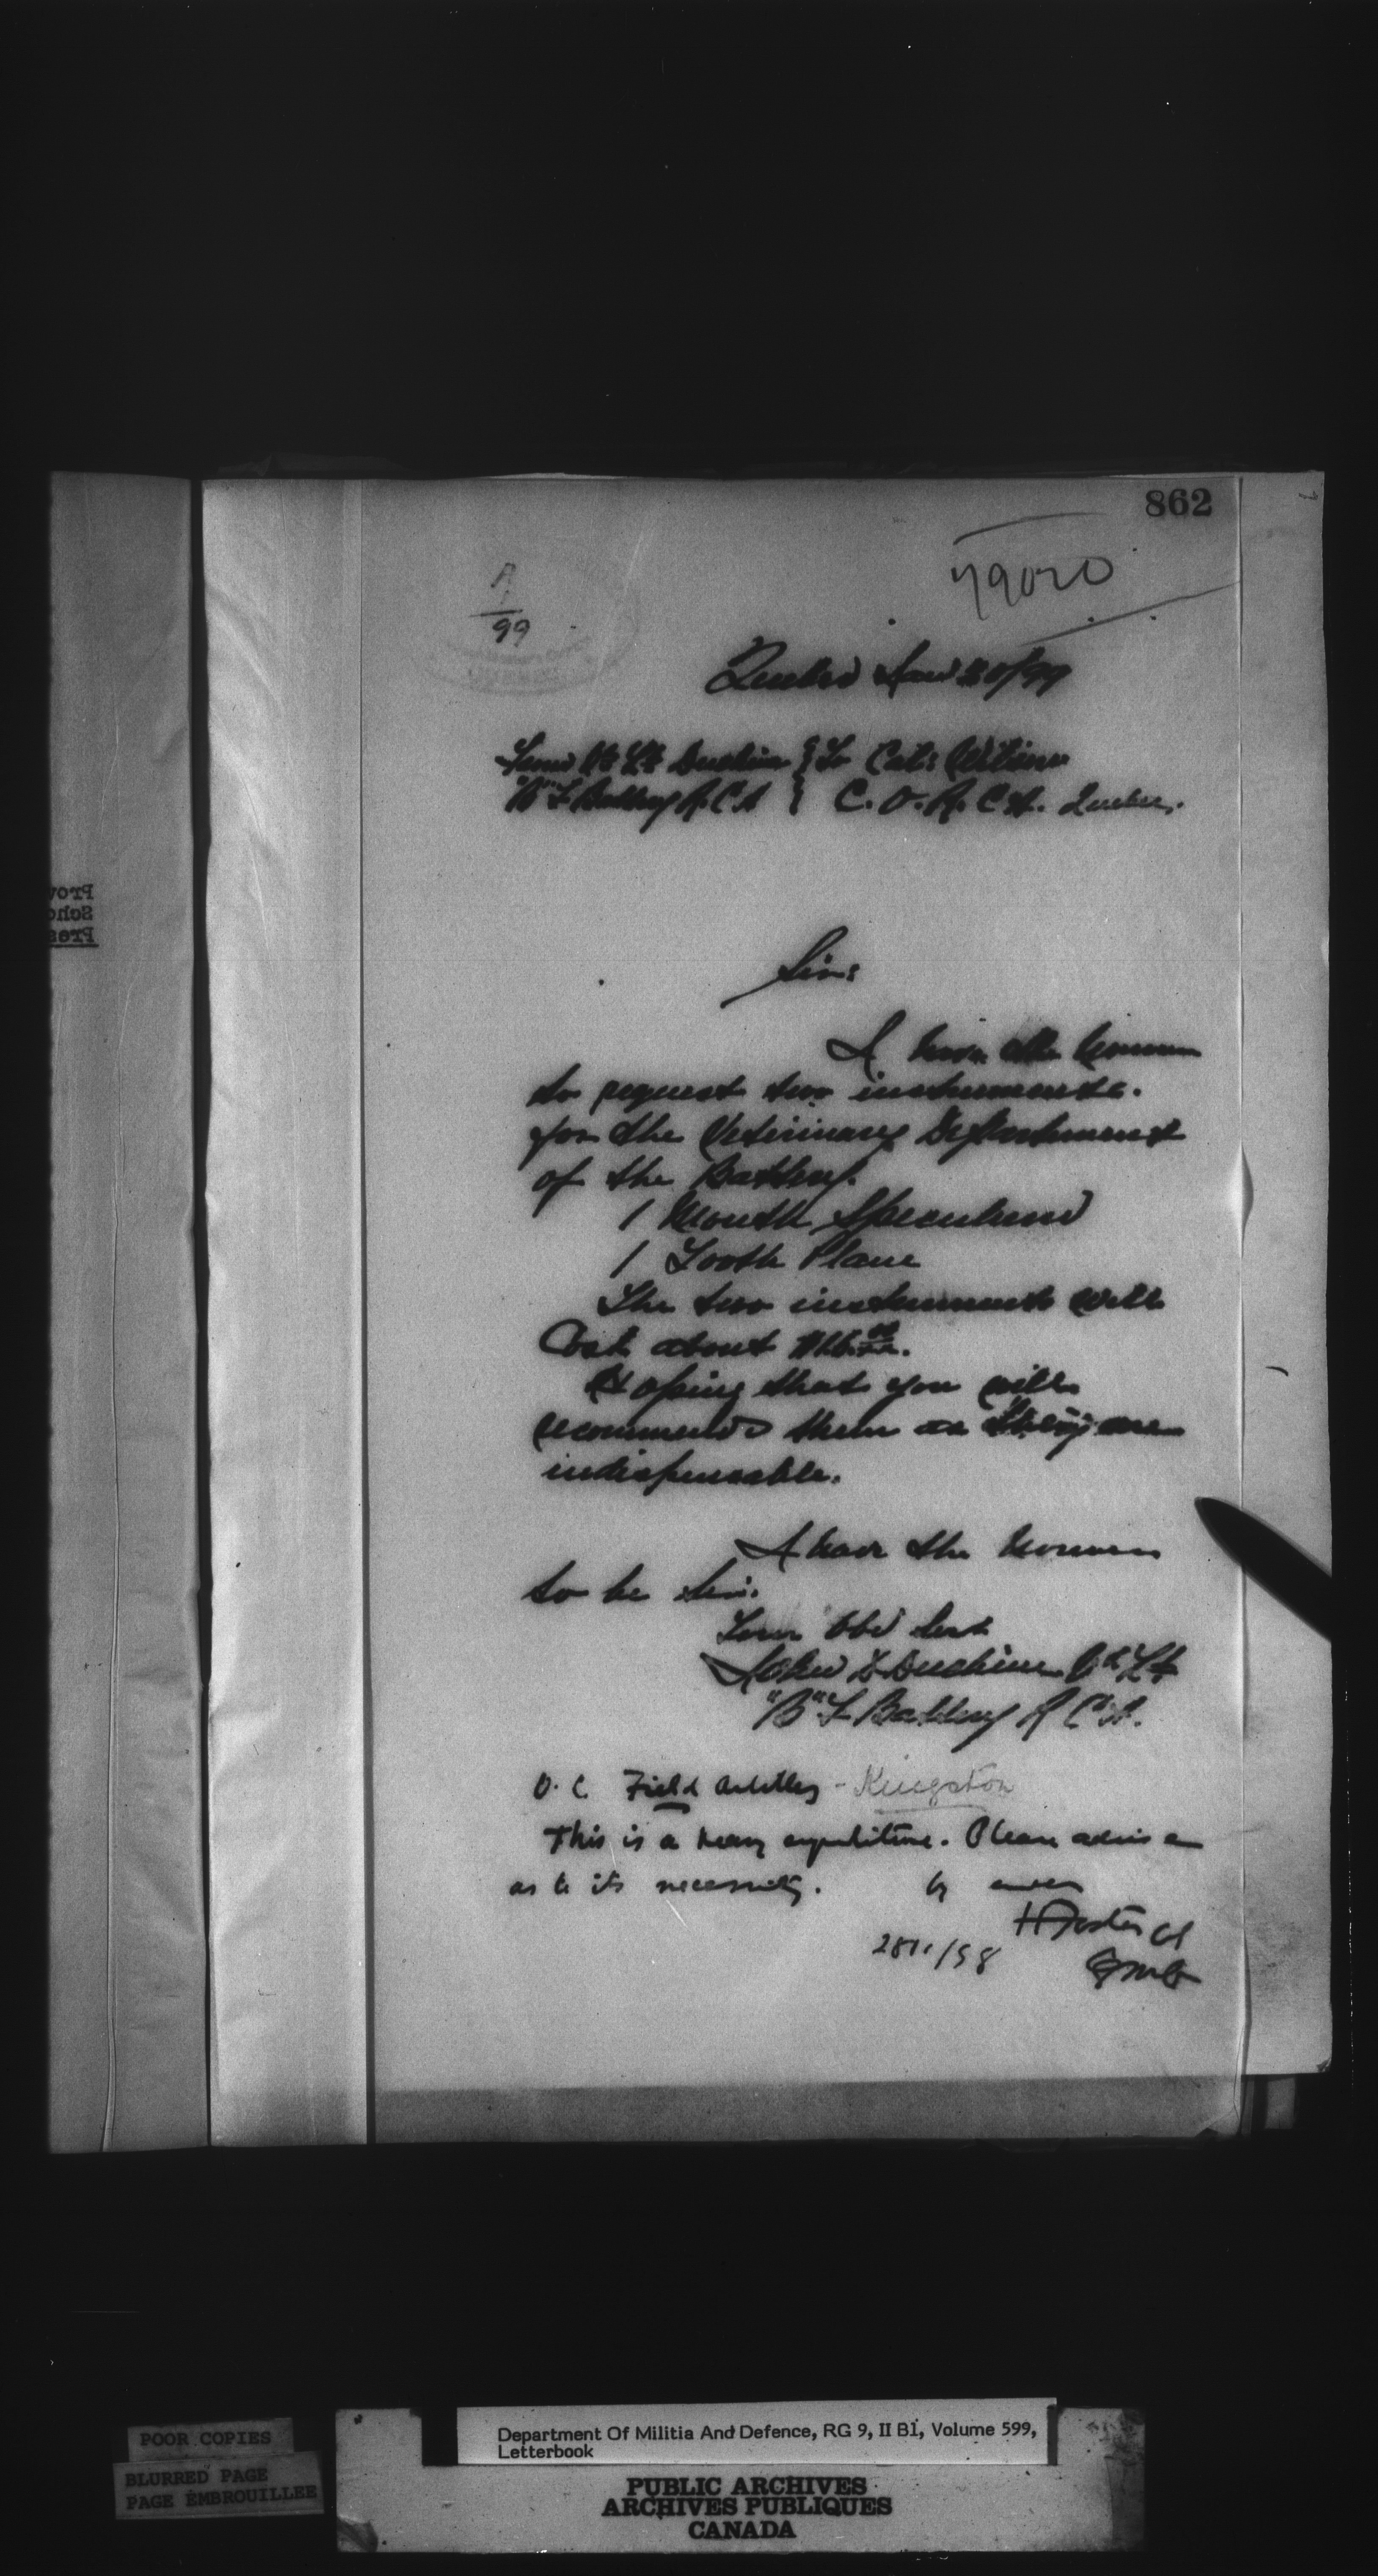 862
79020
99
Quebec Jan 20/99
From Vt Lt
"B" F Battery R.C.A } C.O.R.C.A. Quebec.
Sir:
I have the honour
to request two instruments.
for the Veterinary Department
of the Battery.
1 Mouth Speculum
1 Tooth Plane
The two instruments will
Cost about
Hoping that you will
recommend them as they are
indispensable.
I have the honour
to be Sir.
Your Obd Sert
"B" F Battery R C A.
O.C. Field Artillery - Kingston
This is a heavy expenditure. Please advise
as to its necessity. by order
Foster Col
QMG
Prov
Scho
Pres
POOR COPIES
BLURRED PAGE
PAGE EMBROUILLEE
Department Of Militia And Defence, RG 9, II B1, Volume 599,
Letterbook
PUBLIC ARCHIVES
ARCHIVES PUBLIQUES
CANADA